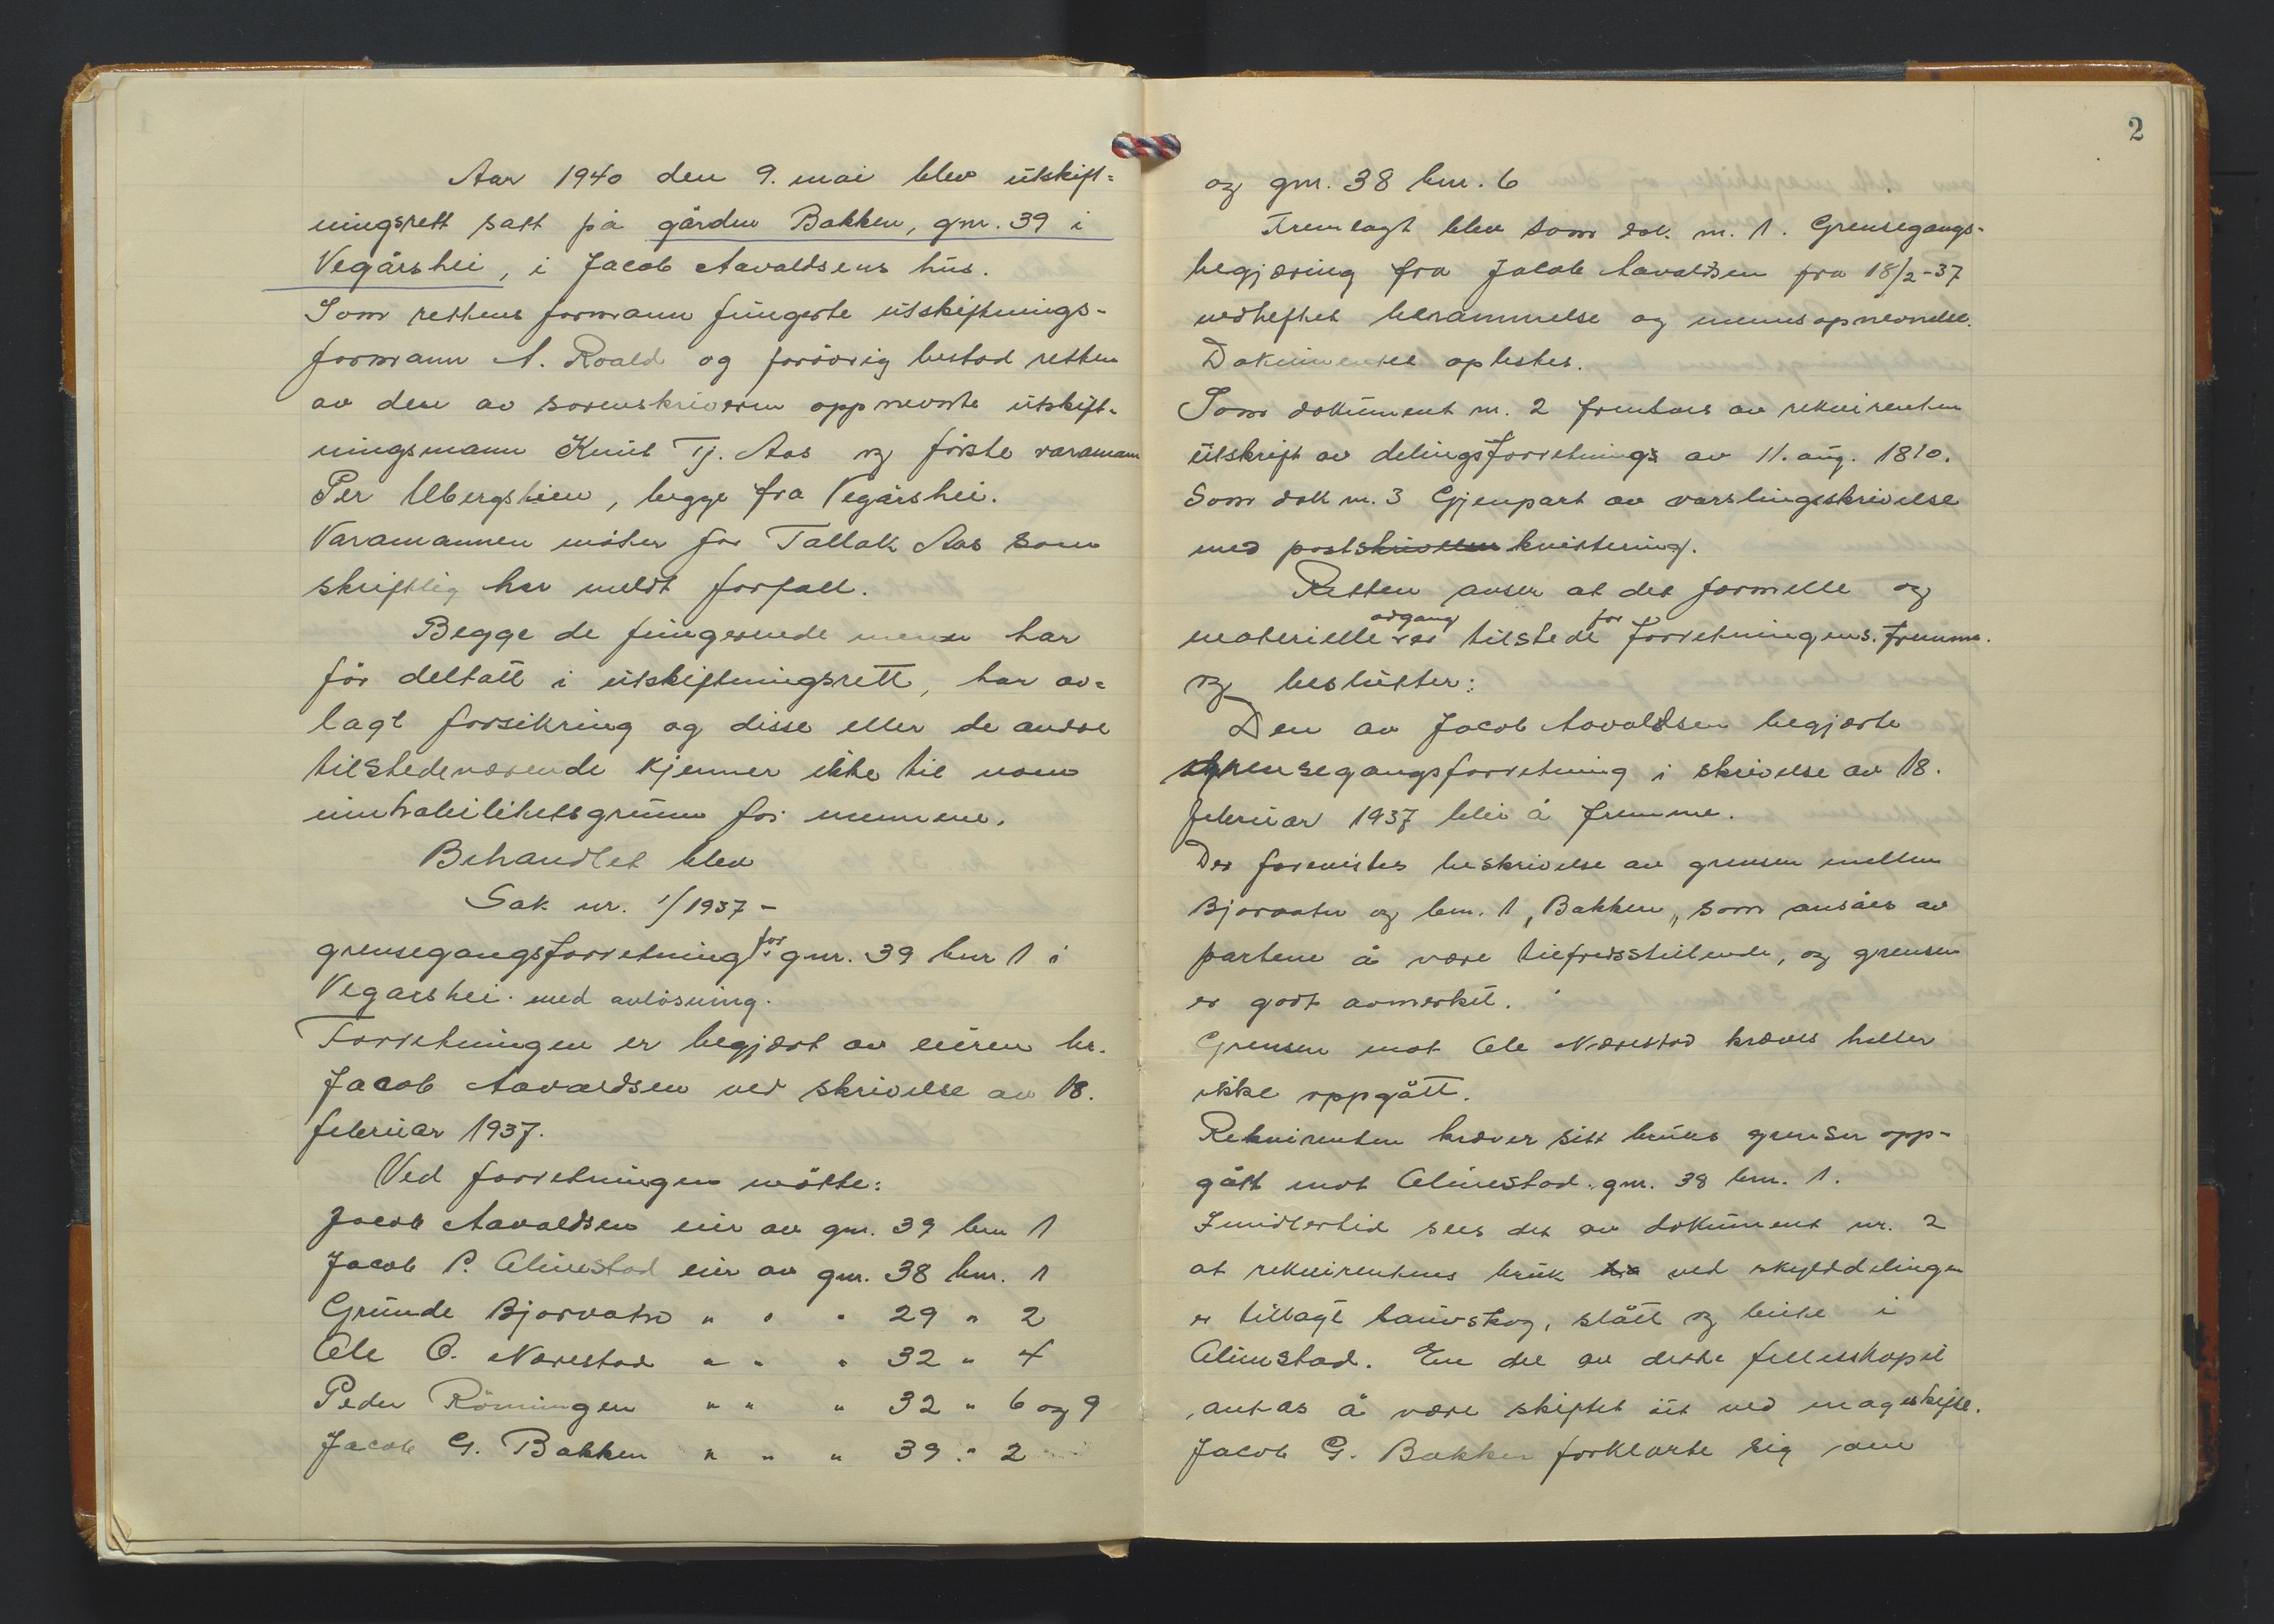 Aar 1940 den 9. mai blev utskift-
ningsrett satt på gården Bakken, gnr. 39 i
Vegårshei, i Jacob Aavaldsens hus.
Som rettens formann fungerte utskiftnings-
formann A. Roald og forövrig bestod retten
av den av sorenskriveren oppnevnte utskift-
ningsmann Knut Tj. Aas og förste varamann
Per Ubergslien, begge fra Vegårshei.
Varamannen möter for Tallak Aas som
skriftlig har meldt forfall.
Begge de fungerende menn har
før deltatt i utskiftningsrett, har av-
lagt forsikring og disse eller de andre
tilstedeværende kjenner ikke til noen
inhabilitetsgrunn for mennene.
Behandlet blev
Sak nr. 1/1937 -
grensegangsforretning for gnr. 39 bnr 1 i
Vegårshei. med avlösning.
Forretningen er begjært av eieren hr.
Jacob Aavaldsen ved skrivelse av 18.
februar 1937.
Ved forretningen mötte:
Jacob Aavaldsen eier av gnr. 39 bnr 1
Jacob P. Alimestad eier av gnr. 38 bnr. 1
Gunde Bjorvatn " " " 29 " 2
Ole O. Nærestad " " " 32 " 4
Peder Rönningen " " " 32 " 6 og 9
Jacob G. Bakken " " " 39 " 2
2
og gnr. 38 bnr. 6
Fremlagt blev som dok. nr. 1. Grensegangs-
begjæring fra Jacob Aavaldsen fra 18/2-37
vedheftet berammelse og mennsopnevnelse.
Dokumentet oplestes.
Som dokument nr. 2 fremtaes av rekvirenten
utskrift av delingsforretnings av 11. aug. 1810.
Som dok nr. 3 Gjenpart av varslingsskrivelse
med postskrivelsen kvittering.
Retten anser at det formelle og
materielle adgang var tilstede for forretningens fremme.
og beslutter:
Den av Jacob Aavaldsen begjærte
grensegangsforretning i skrivelse av 18.
februar 1937 blir å fremme.
Der forevistes beskrivelse av grensen mellem
Bjorvatn og bnr. 1, Bakken, som ansåes av
partene å være tilfredsstillende, og grensen
er godt avmerket.
Grensen mot Ole Nærestad kræves heller
ikke oppgått.
Rekvirenten kræver sitt bruks grenser opp-
gått mot Alimestad. gnr. 38 bnr. 1.
Imidlertid sees det av dokument nr. 2
at rekvirentens bruk ved skylddelingen
er tillagt lauvskog, slått og beite i
Alimestad. En del av dette fellesskapet
antas å være skiftet ut ved mageskifte.
Jacob G. Bakken forklarte sig om